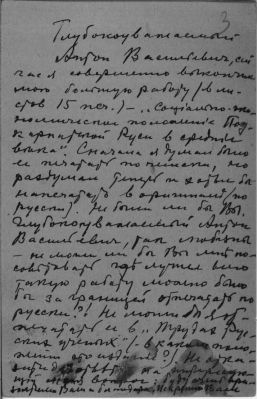 3
Глубокоуважаемый
Антон Васильевич, сей
час я совершенно закончил
мою большую работу (в ли-
стов 15 печ.) – „Социально-эко-
номическое положение Под-
карпатской Руси в средние
века". Сначала я думал было
ее печатать по чешски, но
раздумал теперь и хотел бы
напечатать в оригинале (по
русски). Не были ли бы Вы,
Глубокоуважаемый Антон
Васильевич, так любезны
– не могли ли бы Вы мне по-
советовать где лучше всего
такую работу можно было
бы за границей отпечатать по
русски?! Не могли бы её от-
печатать и в „Трудах Рус-
ских ученых"